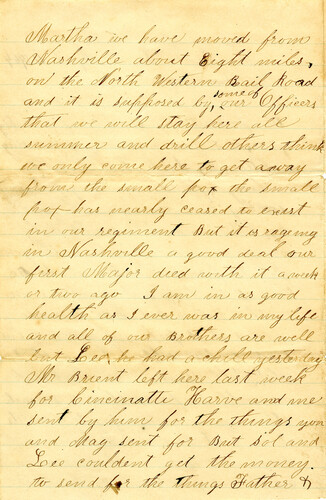 Martha we have moved from
Nashville about Eight miles,
on the North Western Rail Road
and it is supposed by some of our Officers
that we will stay here all
summer and drill others think
we only come here to get away
from the small pox the small
pox has nearly ceased to exist
in our regiment But it is rageing
in Nashville a good deal our
ferst Major deed with it a week
or two ago I am in as good
health as I ever was in my life
and all of our Brothers are well
but Lee, he had a chill yesterday
Mr Brient left here last week
for Cincinatti Harve and me
sent by him for the things you
and Mag sent for But Sol and
Lee couldent get the money
to send for the things Father &